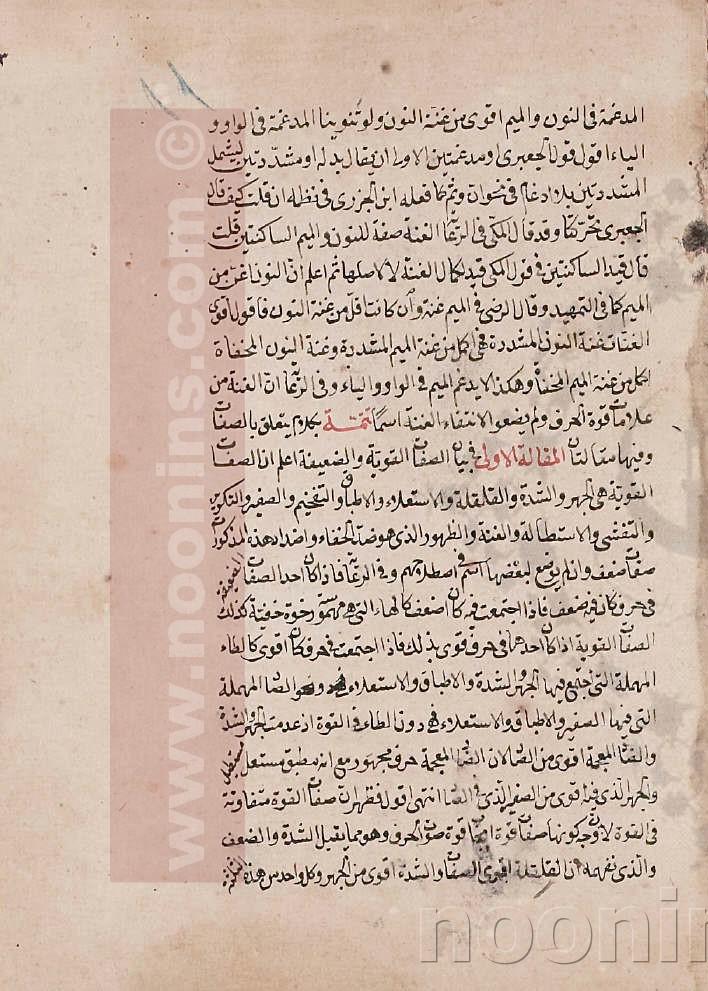 المدغمة فى النون والميم اقوى من غنة النون ولو تنوينا المدغمة فى الواو و
الياء اقول قول الجعبرى او مدغمتين الاولى ان يقال بدله او مشددتين ليشمل
المشددتين بلا ادغام فى نحو ان وثم كما فعله ابن الجزرى فى نظمه ان قلت كيف قال
الجعبرى تحركتا وقد قال المكى فى الرعاية الغنة صفة للنون والميم الساكنتين قلت
قال قيد الساكنتين فى قول المكى قيد لكمال الغنة لا لاصلها ثم اعلم ان النون اغن من
الميم كما فى التمهيد وقال الرضى فى الميم غنة وان كانت اقل من غنة النون فاقول اقوى
الغنات غنة النون المشددة فهى اكمل من غنة الميم المشددة وغنة النون المخفاة
اكمل من غنة الميم المخفاة وهكذا لا يدغم الميم فى الواو والياء وفى الرعاية ان الغنة من
علامات قوة الحرف ولم يضعوا لانتفاء الغنة اسما تتمة بكلام يتعلق بالصفات
وفيها مقالتان المقالة الاولى فى بيان الصفات القوية والضعيفة اعلم ان الصفات
القوية هى الجهر والشدة والقلقلة والاستعلاء والاطباق والتفخيم والصفير والتكرير
والتفشى والاستطالة والغنة والظهور الذى هو ضد الخفاء واضداد هذه المذكورات
صفات ضعف وان لم يوضع لبعضها اسم فى اصطلاحهم وفى الرعاية فاذا كان احد الصفات الضعيفة
فى حرف كان فيه ضعف فاذا اجتمعت فيه كان اضعف كالهاء التى هى مهموسة رخوة خفية كذلك
الصفات القوية اذا كان احدها فى حرف قوى بذلك فاذا اجتمعت فى حرف كان اقوى كالطاء
المهملة التى اجتمع فيها الجهر والشدة والاطباق والاستعلاء ونحو الصاد المهملة
التى فيها الصفير والاطباق والاستعلاء فهى دون الطاء فى القوة اذ عدمت الجهر والشدة
والضاد المعجمة اقوى من الصاد لان الضاد المعجمة حرف مجهور مع انه مطبق مستعل مستطيل
والجهر الذى فيه اقوى من الصفير الذى فى الصاد انتهى اقول فظهر ان صفات القوة متفاوتة
فى القوة لان وجه كونها صفات قوة ايجابها قوة صوت الحرف وهو مما يقبل الشدة والضعف
والذى نفهمه ان القلقلة اقوى الصفات والشدة اقوى من الجهر وكل واحد من هذه الثلثة
www.noonins.com ©
noonin